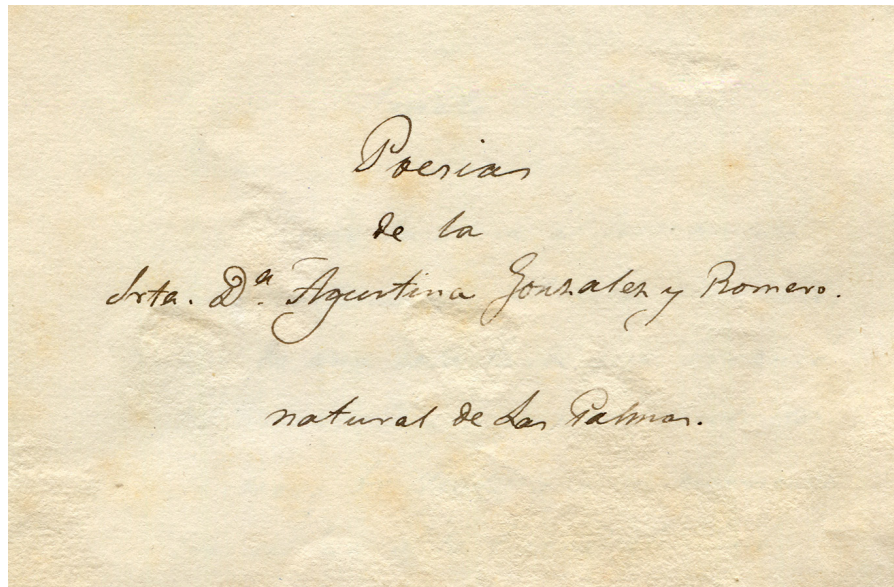 Poesias
de la
Srta. D.ª Agustina Gonzalez y Romero.
natural de Las Palmas.